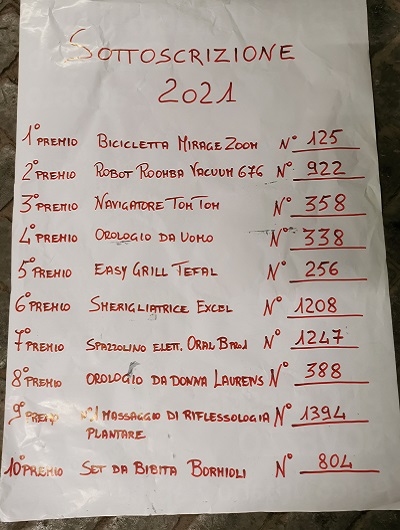 SOTTOSCRIZIONE
2021
1° PREMIO BICICLETTA MIRAGE ZOOM N° 125
2° PREMIO ROBOT ROOMBA VACUUM 676 N° 922
3° PREMIO NAVIGATORE TOM TOM N° 358
4° PREMIO OROLOGIO DA UOMO N° 338
5° PREMIO EASY GRILL TEFAL N° 256
6° PREMIO SMERIGLIATRICE EXCEL N° 1208
7° PREMIO SPAZZOLINO ELETT. ORAL B N° 1247
8° PREMIO OROLOGIO DA DONNA LAURENS N° 388
9° PREMIO N°1 MASSAGGIO DI RIFLESSOLOGIA N° 1394
PLANTARE
10° PREMIO SET DA BIBITA BORMIOLI N° 804